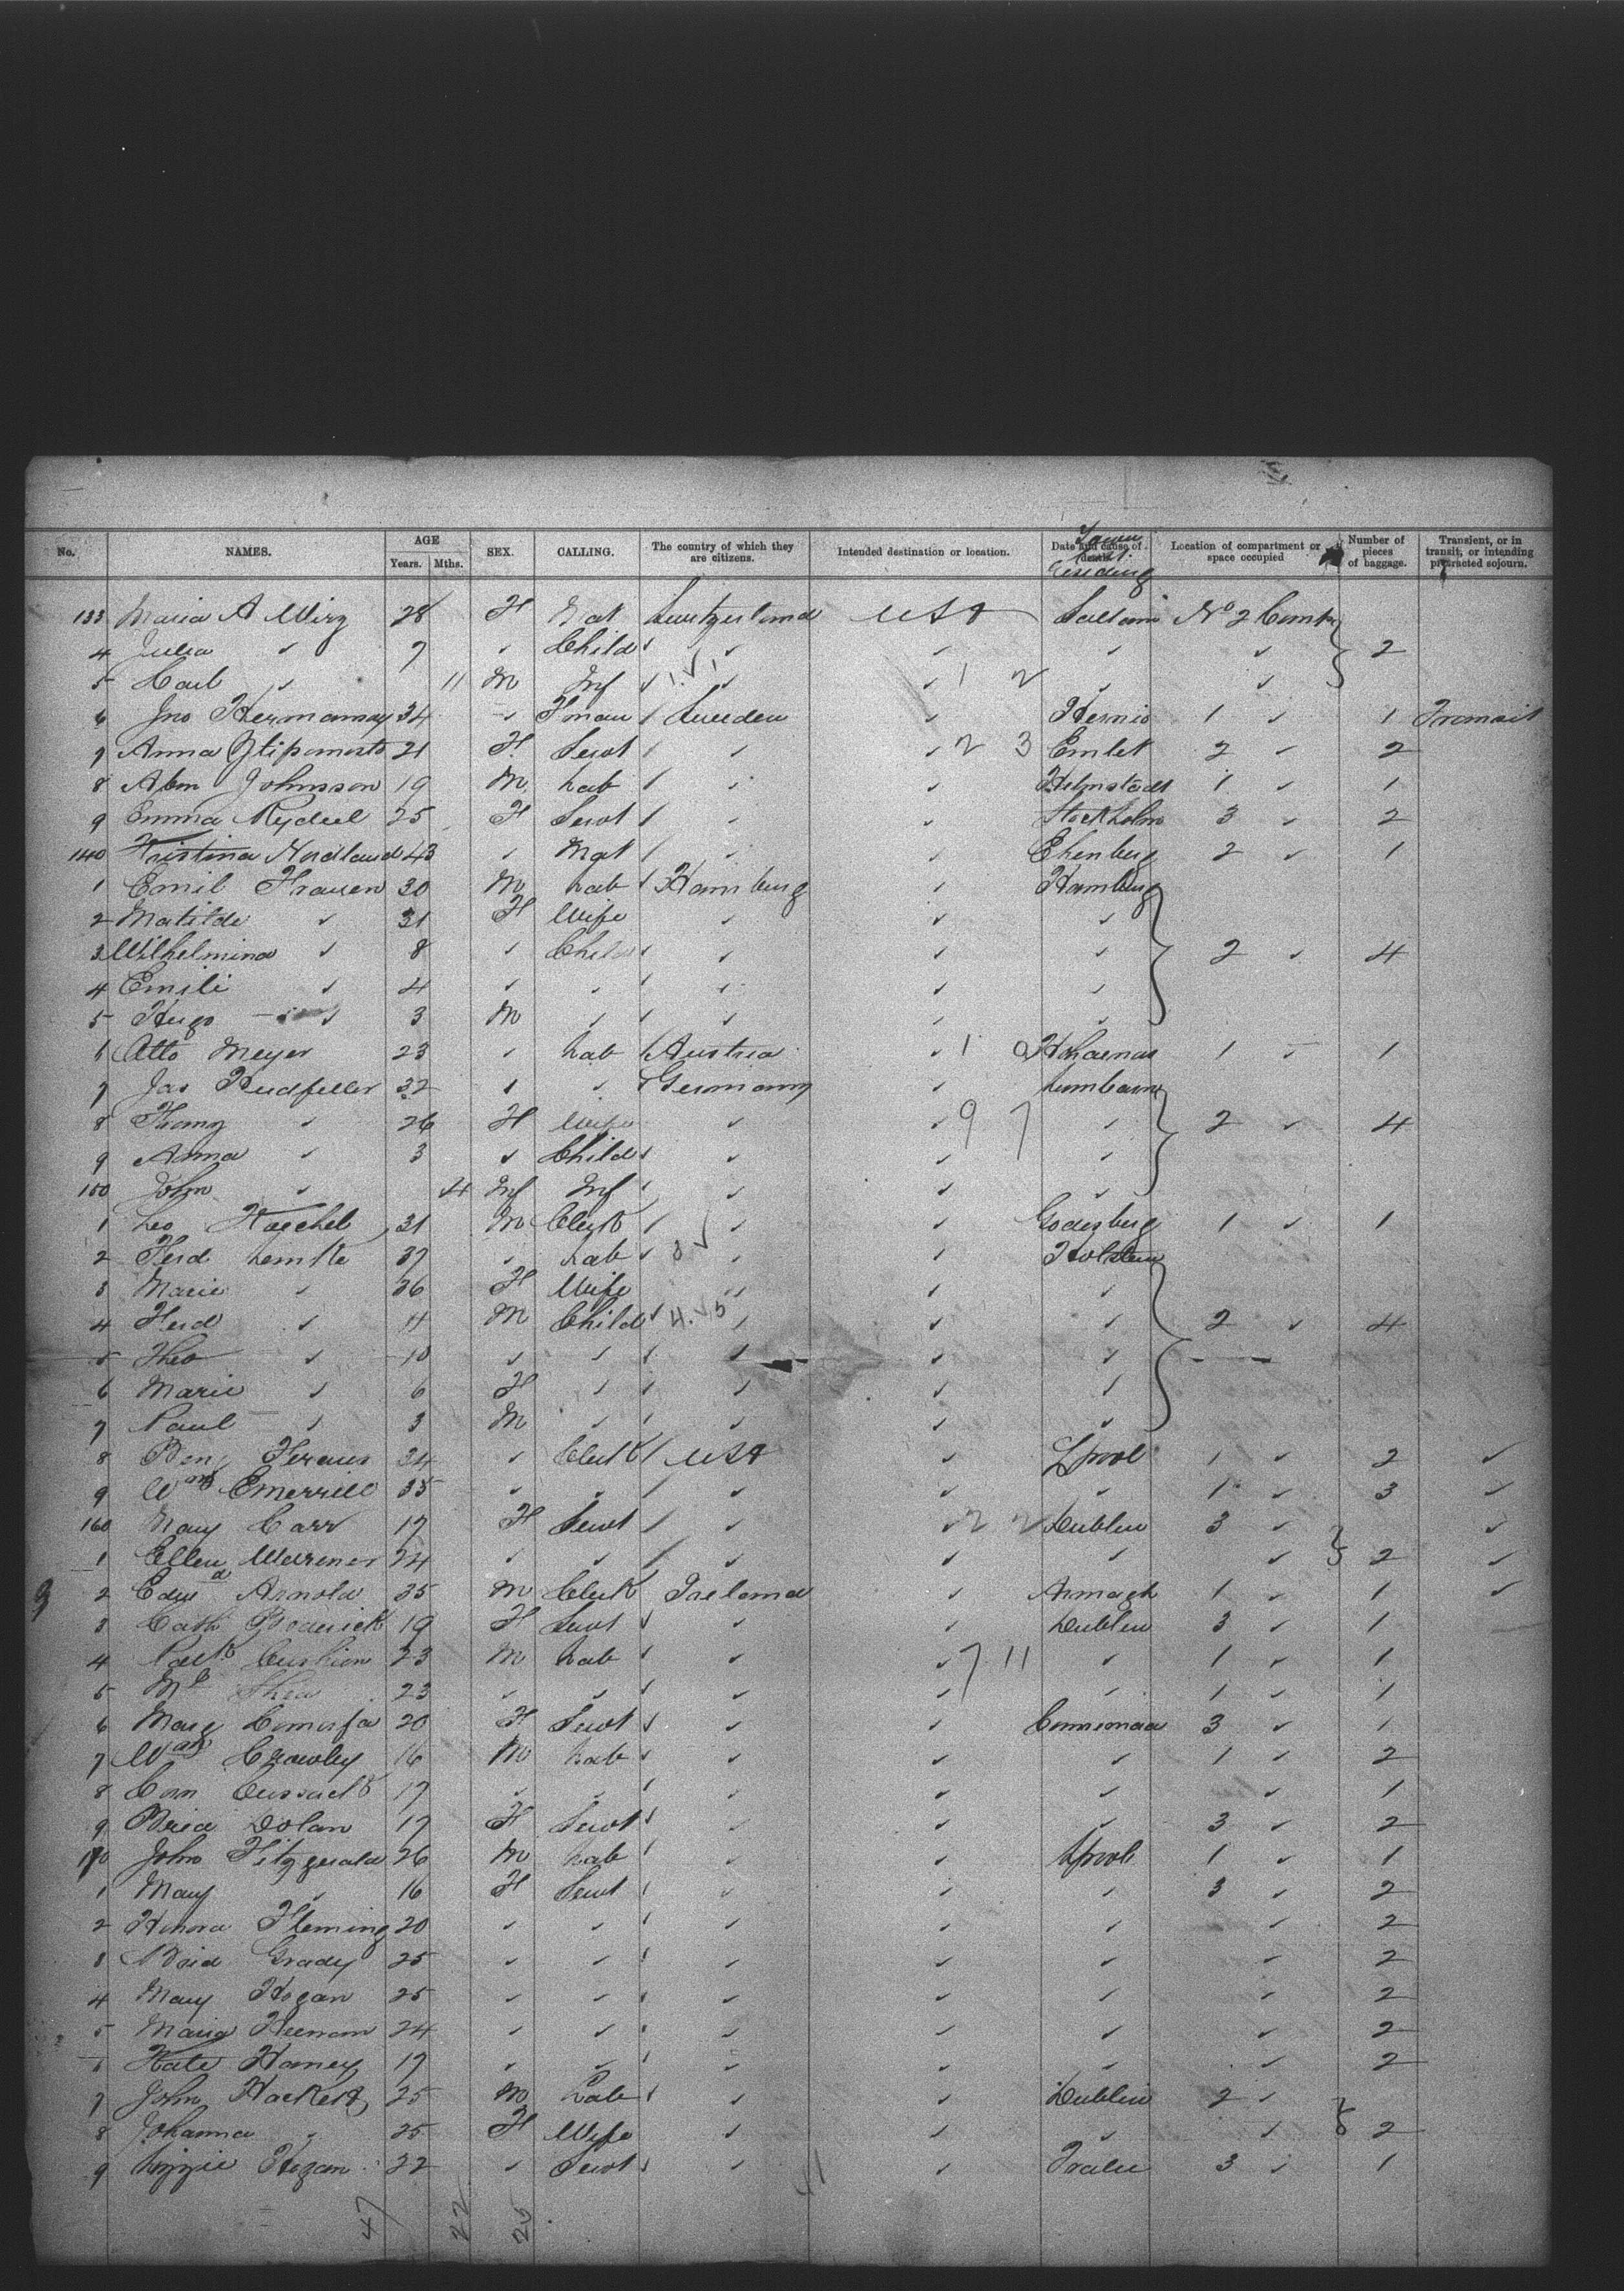 No. NAMES. AGE Years. Mths. SEX. CALLING. The country of which they are citizens. Intended destination or location. Date and cause of death. Town residing Location of compartment or space occupied Number of pieces of baggage. Transient, or in transit, or intending protracted sojourn.
133 Maria A Wirz 28 F Mat Switzerland USA No 2 Comp
4 Julia ✓ 7 ✓ Child ✓ ✓ ✓ ✓ ✓ 2
5 Carl ✓ 11 M Inf ✓ ✓ ✓ 1 2 ✓ ✓
6 Jno 34 ✓ / Sweden ✓ 1 ✓ 1 Transit
7 Anna 21 F Servt / ✓ ✓ 2 3 2 ✓ 2
8 Abm Johnsson 19 M Lab / ✓ ✓ 1 ✓ 1
9 Emma Rydeel 25 F Servt / ✓ ✓ Stockholm 3 ✓ 2
140 Kristina Nordland 43 ✓ Mat / ✓ ✓ 2 ✓ 1
1 Emil Frausen 30 M Lab / Hamburg ✓ Hamburg
2 Matilde ✓ 31 F Wife ✓ ✓ ✓
3 Wilhelmina ✓ 8 ✓ Child ✓ ✓ ✓ ✓ 2 ✓ 4
4 Emili ✓ 4 ✓ ✓ ✓ ✓ ✓ ✓
5 Hugo ✓ 3 M ✓ ✓ ✓ ✓ ✓
6 Otto Meyer 23 ✓ Lab / Austria ✓ 1 0 1 1
7 Jas 32 ✓ ✓ Germany ✓
8 ✓ 26 F Wife ✓ ✓ 9 7 ✓ 2 ✓ 4
9 Anna ✓ 3 ✓ Child ✓ ✓ ✓ ✓
150 John ✓ 4 Inf Inf ✓ ✓ ✓ ✓
1 Leo Kaechel 31 M Clerk / ✓ ✓ Godesberg 1 ✓ 1
2 Ferd Lemke 37 ✓ Lab ✓ 3 ✓ ✓ ✓ Holstein
3 Marie ✓ 36 F Wife ✓ ✓ ✓
4 Ferd ✓ 11 M Child ✓ 4. ✓ 5 ✓ ✓ ✓ 2 ✓ 4
5 Theo ✓ 10 ✓ ✓ ✓ ✓ ✓ ✓
6 Marie ✓ 6 F ✓ ✓ ✓ ✓ ✓
7 Paul ✓ 3 M ✓ ✓ ✓ ✓ ✓
8 Benj 34 ✓ Clerk / USA ✓ Lpool 1 ✓ 2 ✓
9 Wm Emerrill 35 ✓ ✓ / ✓ ✓ ✓ 1 ✓ 3 ✓
160 Mary Carr 17 F Servt / ✓ ✓ 2 2 Dublin 3 ✓ ✓
1 Ellen 24 ✓ ✓ / ✓ ✓ ✓ ✓ 2 ✓
2 Edwd Arnold 35 M Clerk Ireland ✓ Armagh 1 ✓ 1 ✓
3 Cath Broderick 19 F Servt ✓ ✓ ✓ Dublin 3 ✓ 1
4 Patk Cushion 23 M Lab ✓ ✓ ✓ 7 11 ✓ 1 ✓ 1
5 Ml Shea 23 ✓ ✓ ✓ ✓ ✓ ✓ 1 ✓ 1
6 Marg 20 F Servt ✓ ✓ ✓ 3 ✓ 1
7 Wm Crowley 16 M Lab ✓ ✓ ✓ ✓ 1 ✓ 2
8 Corn Cussack 17 ✓ ✓ ✓ ✓ ✓ ✓ ✓ 1
9 Brid Dolan 17 F Servt ✓ ✓ ✓ ✓ 3 ✓ 2
170 John Fitzgerald 26 M Lab ✓ ✓ ✓ Lpool 1 ✓ 1
1 Mary ✓ 16 F Servt ✓ ✓ ✓ ✓ 3 ✓ 2
2 Honora Fleming 20 ✓ ✓ ✓ ✓ ✓ ✓ ✓ 2
3 Brid Grady 25 ✓ ✓ ✓ ✓ ✓ ✓ ✓ 2
4 Mary Hogan 25 ✓ ✓ ✓ ✓ ✓ ✓ ✓ 2
5 Maria Heenan 24 ✓ ✓ ✓ ✓ ✓ ✓ ✓ 2
6 Kate Haney 17 ✓ ✓ ✓ ✓ ✓ ✓ ✓ 2
7 John Hackett 25 M Lab ✓ ✓ ✓ Dublin 2 ✓
8 Johanna ✓ 25 F Wife ✓ ✓ ✓ ✓ 2
9 Lizzie Hogan 22 ✓ Servt ✓ ✓ ✓ Tralee 3 ✓ 1
47 22 25